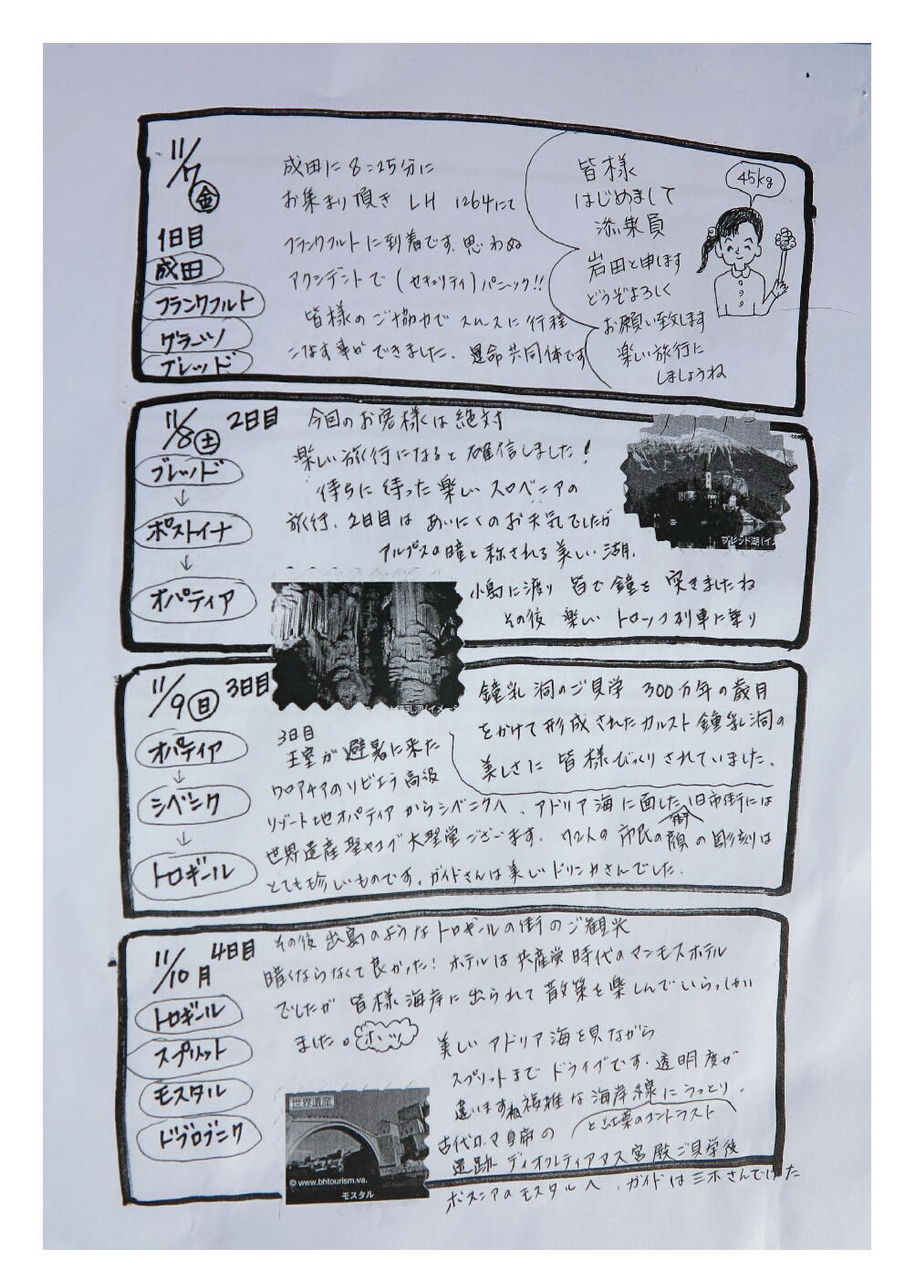 11/7 金
1日目
成田
フランクフルト
グラーツ
ブレッド
成田に 8:25分に
お集まり頂き LH 1264にて
フランクフルトに到着です。思わぬ
アクシデントで (セキュリティ) パニック!!
皆様のご協力で スムスに行程
こなす事ができました。運命共同体です
皆様
はじめまして
添乗員
岩田と申します
どうぞよろしく
お願い致します
楽しい旅行に
しましょうね
45kg
11/8 土 2日目
ブレッド
↓
ポストイナ
↓
オパティア
今回のお客様は絶対
楽しい旅行になると確信しました!
待ちに待った楽しいスロベニアの
旅行、2日目は あいにくのお天気でしたが
アルプスの瞳と称される美しい湖、
小島に渡り 皆で鐘を 突きましたね
その後 楽しい トロッコ列車に乗り
11/9 日 3日目
オパティア
↓
シベニク
↓
トロギール
鐘乳洞のご見学 300万年の歳月
をかけて形成されたカルスト鍾乳洞の
美しさに 皆様びっくりされていました。
3日目
王室が避暑に来た
クロアチアのリビエラ高級
リゾート地オパティアからシベニクへ、アドリア海に面した旧市街には
世界遺産聖ヤコブ大聖堂ございます。72人の市民の顔の彫刻は
とても珍しいものです。ガイドさんは美しいドリンカさんでした。
11/10 月 4日目
トロギール
スプリット
モスタル
ドブロブニク
その後 出島のようなトロギールの街のご観光
暗くならなくて良かった! ホテルは共産党時代のマンモスホテル
でしたが 皆様海岸に出られて散策を楽しんでいらっしゃい
ました。ホッ
美しい アドリア海を見ながら
スプリットまで ドライブです。透明度が
違いますね複雑な海岸線にうっとり。
と紅葉のコントラスト
古代ローマ皇帝の
遺跡 ディオクレティアヌス宮殿ご見学後
ボスニアのモスタルへ、ガイドは三ホさんでした
世界遺産
© www.bhtourism.va.
モスタル